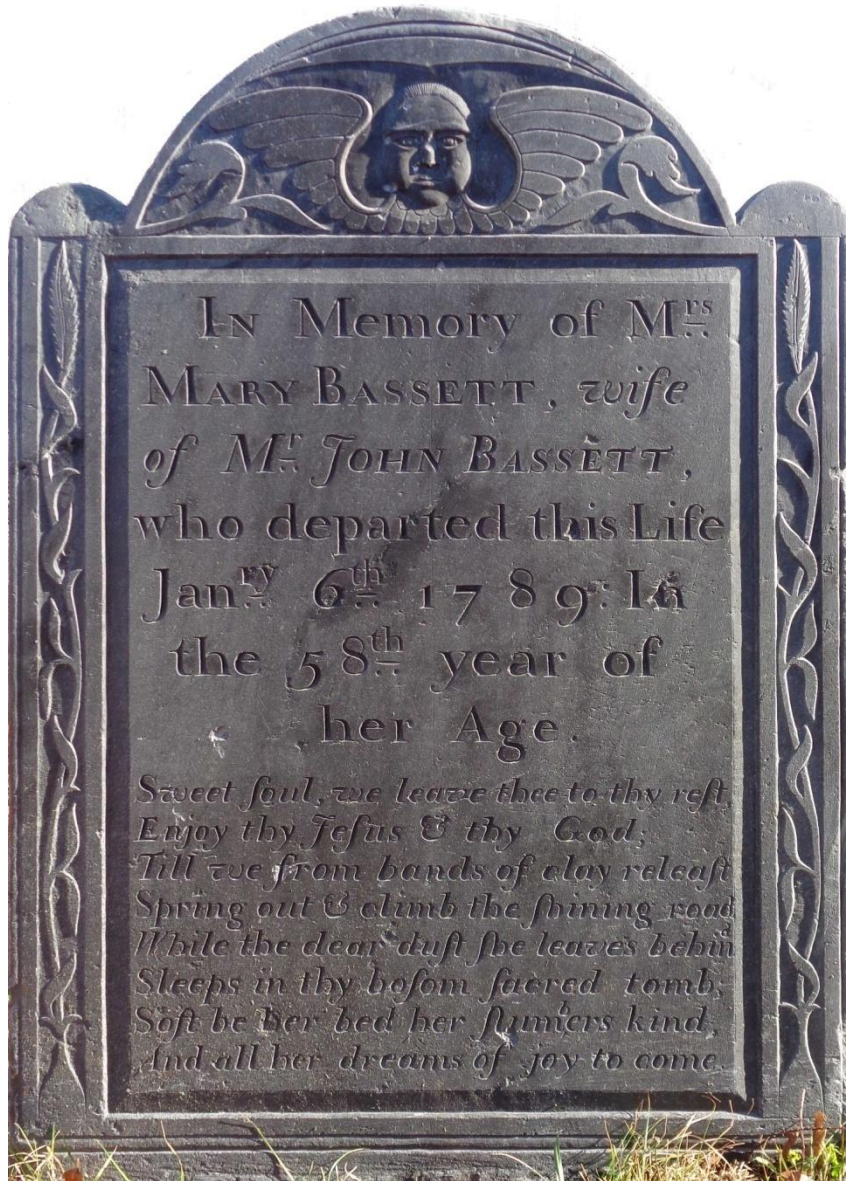 In Memory of Mrs
Mary Bassett, wife
of Mr John Bassett,
who departed this Life
Janry 6th 1789: In
the 58th year of
her Age.
Sweet ſoul, we leave thee to thy reſt,
Enjoy thy Jeſus & thy God;
Till we from bands of clay releaſt
Spring out & climb the ſhining road
While the dear duſt ſhe leaves behind
Sleeps in thy boſom ſacred tomb;
Soft be her bed her ſlumbers kind,
And all her dreams of joy to come.